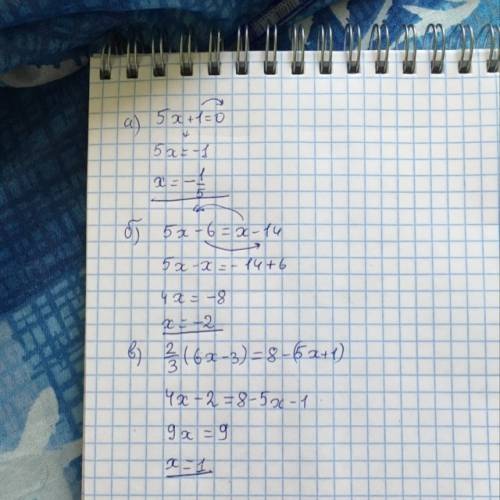 а) 5x+1=0
5x=-1
x=-1/5
б) 5x-6=x-14
5x-x=-14+6
4x=-8
x=-2
в) 2/3(6x-3)=8-(5x+1)
4x-2=8-5x-1
9x=9
x=1